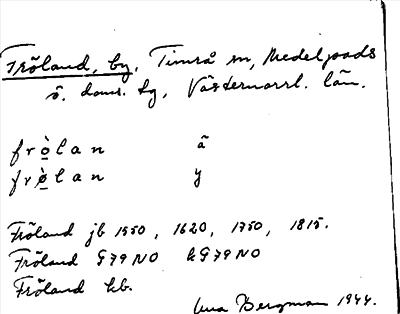 Fröland, by, Timrå sn, Medelpads
ö. doms. tg, Västernorrl. län.
frò̲lan ä
frø̲̀lan y
Fröland jb 1550, 1620, 1750, 1815.
Fröland G79NO kG79NO
Fröland kb.
Una Bergman 1944.